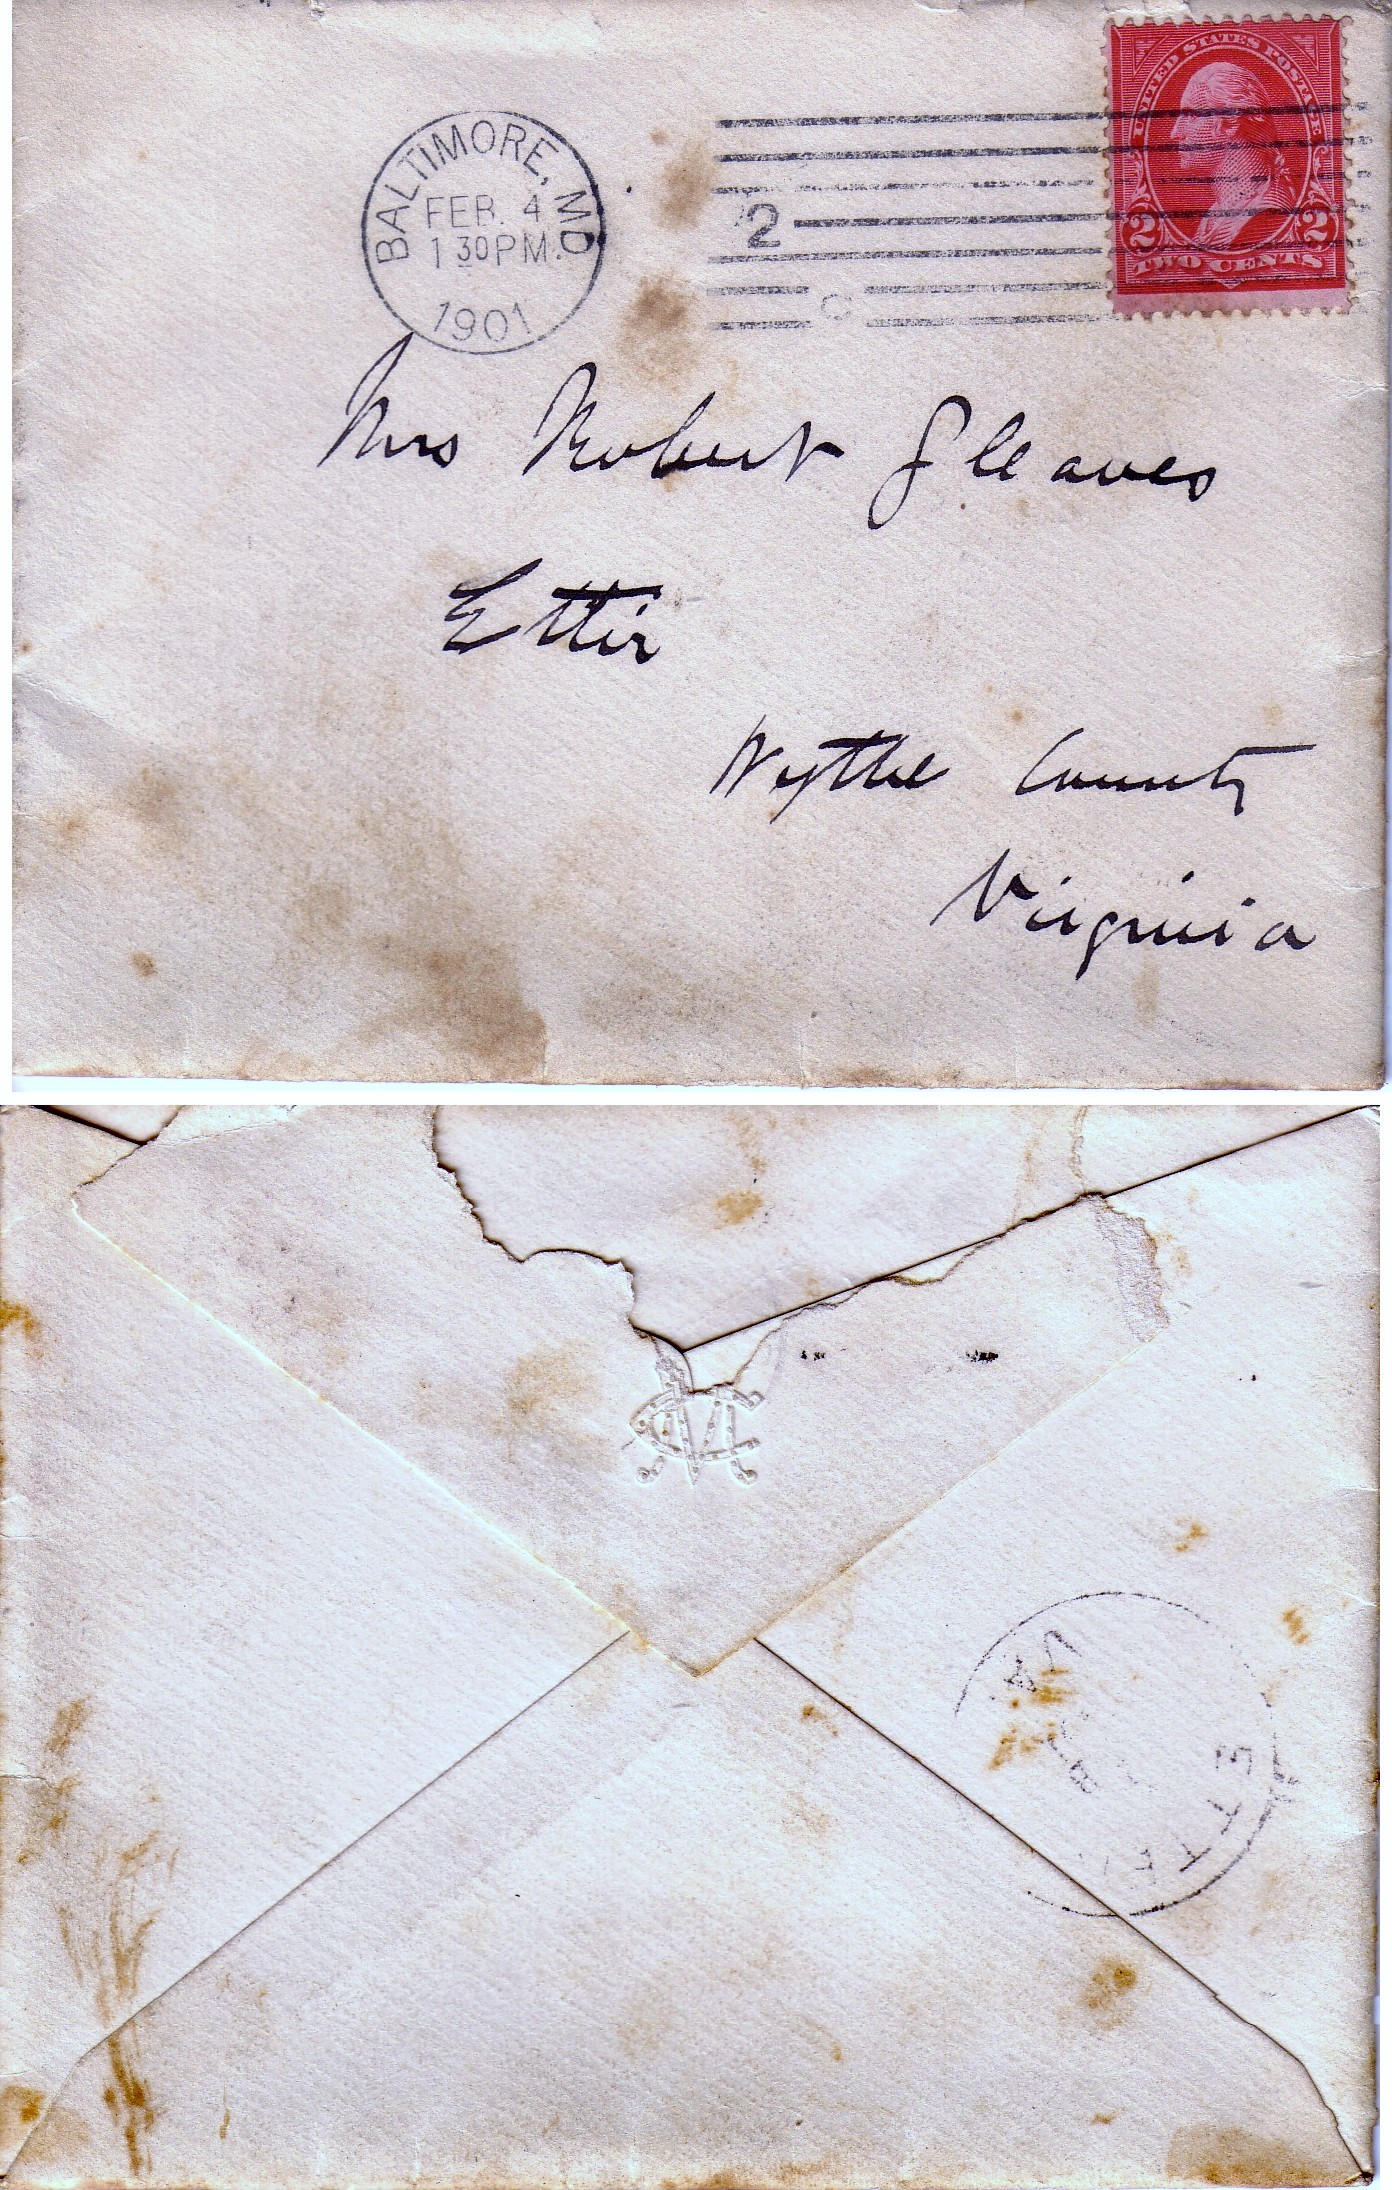 BALTIMORE, MD
FEB. 4
1 30 PM.
1901
2
C
UNITED STATES POSTAGE
2 2
TWO CENTS
Mrs Robert Gleaves
Etter
Wythe County
Virginia
VA.